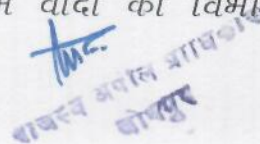 वादी का विभा
राजस्व अपील प्राधिका
जोधपुर